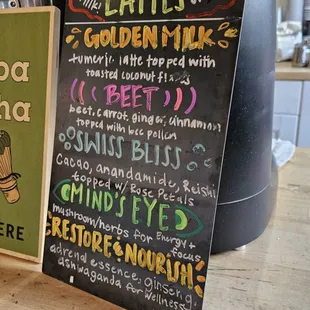 LATTES
GOLDEN MILK
tumeric latte topped with
toasted coconut flakes
((( BEET )))
beet, carrot, ginger, cinnamon
topped with bee pollen
SWISS BLISS
Cacao, anandamide, Reishi
topped w/ Rose Petals
MIND'S EYE
mushroom/herbs for Energy +
focus
RESTORE & NOURISH
adrenal essence: ginseng,
ashwaganda for wellness
ERE